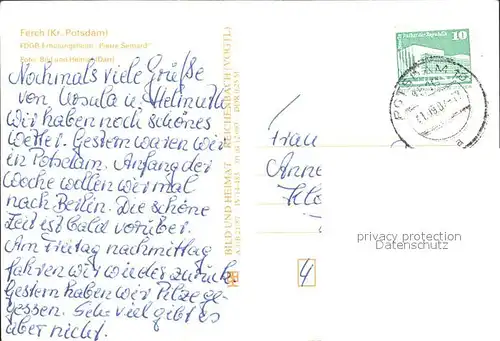 Ferch (Kr. Potsdam)
FDGB-Erholungsheim "Pierre Semard"
Foto: Bild und Heimat
Nochmals viele Grüße
von Ursula u. Helmuth
Wir haben noch schönes
Wetter. Gestern waren wir
in Potsdam. Anfang der
Woche wollen wir mal
nach Berlin. Die schöne
Zeit ist bald vorüber.
Am Freitag nachmittag
fahren wir wieder zurück.
Gestern haben wir Pilze ge-
gessen. Sehr viel gibt es
aber nicht.
BILD UND HEIMAT REICHENBACH (VOGTL)
10
POTSDAM
Frau
Anne
privacy protection
Datenschutz
4